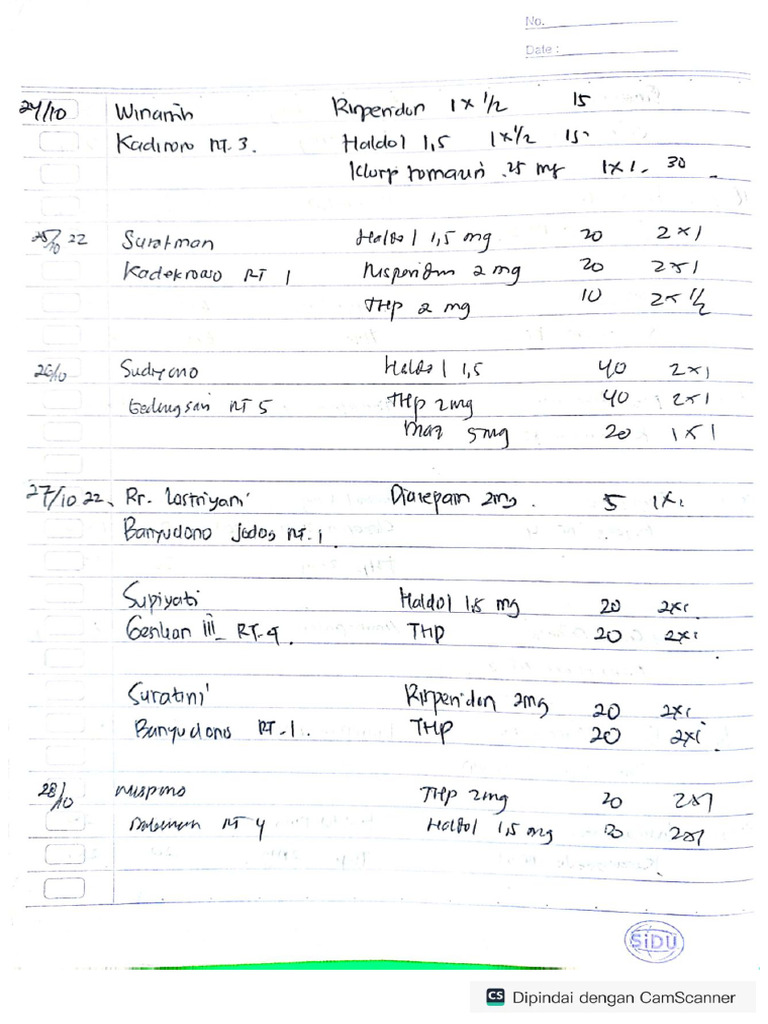 No.
Date :
24/10 Winarsih Risperidon 1x1/2 15
Kadiroro RT. 3. Haldol 1,5 1x1/2 15
Klorpromazin 25 mg 1x1. 30
25/10 22 Suratman Haldol 1,5 mg 20 2x1
Kadekrowo RT 1 Risperidon 2 mg 20 2x1
THP 2 mg 10 2x 1/2
26/10 Sudiyono Haldol 1,5 40 2x1
Gedongsari RT 5 THP 2mg 40 2x1
5mg 20 1x1
27/10 22. Rr. Lastriyani Diazepam 2mg. 5 1x1
Banyudono RT. 1
Supiyati Haldol 1,5 mg 20 2x1
III RT. 4. THP 20 2x1
Suratini Risperidon 2mg 20 2x1
Banyudono RT. 1. THP 20 2x1
28/10 THP 2mg 20 2x1
RT 4 Haldol 1,5 mg 20 2x1
SiDU
CS Dipindai dengan CamScanner